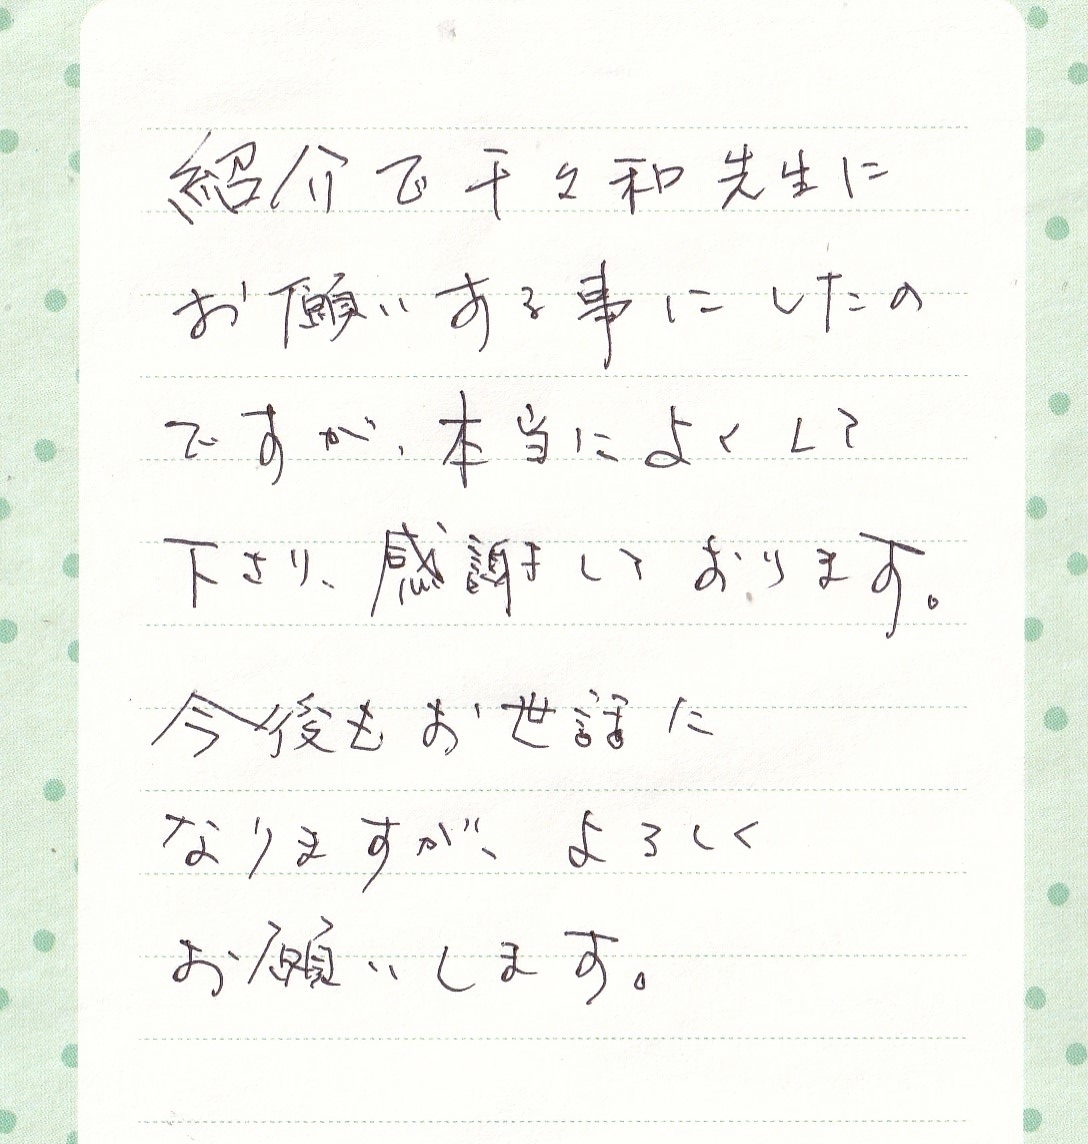 紹介で千々和先生に
お願いする事にしたの
ですが、本当によくして
下さり、感謝しております。
今後もお世話に
なりますが、よろしく
お願いします。